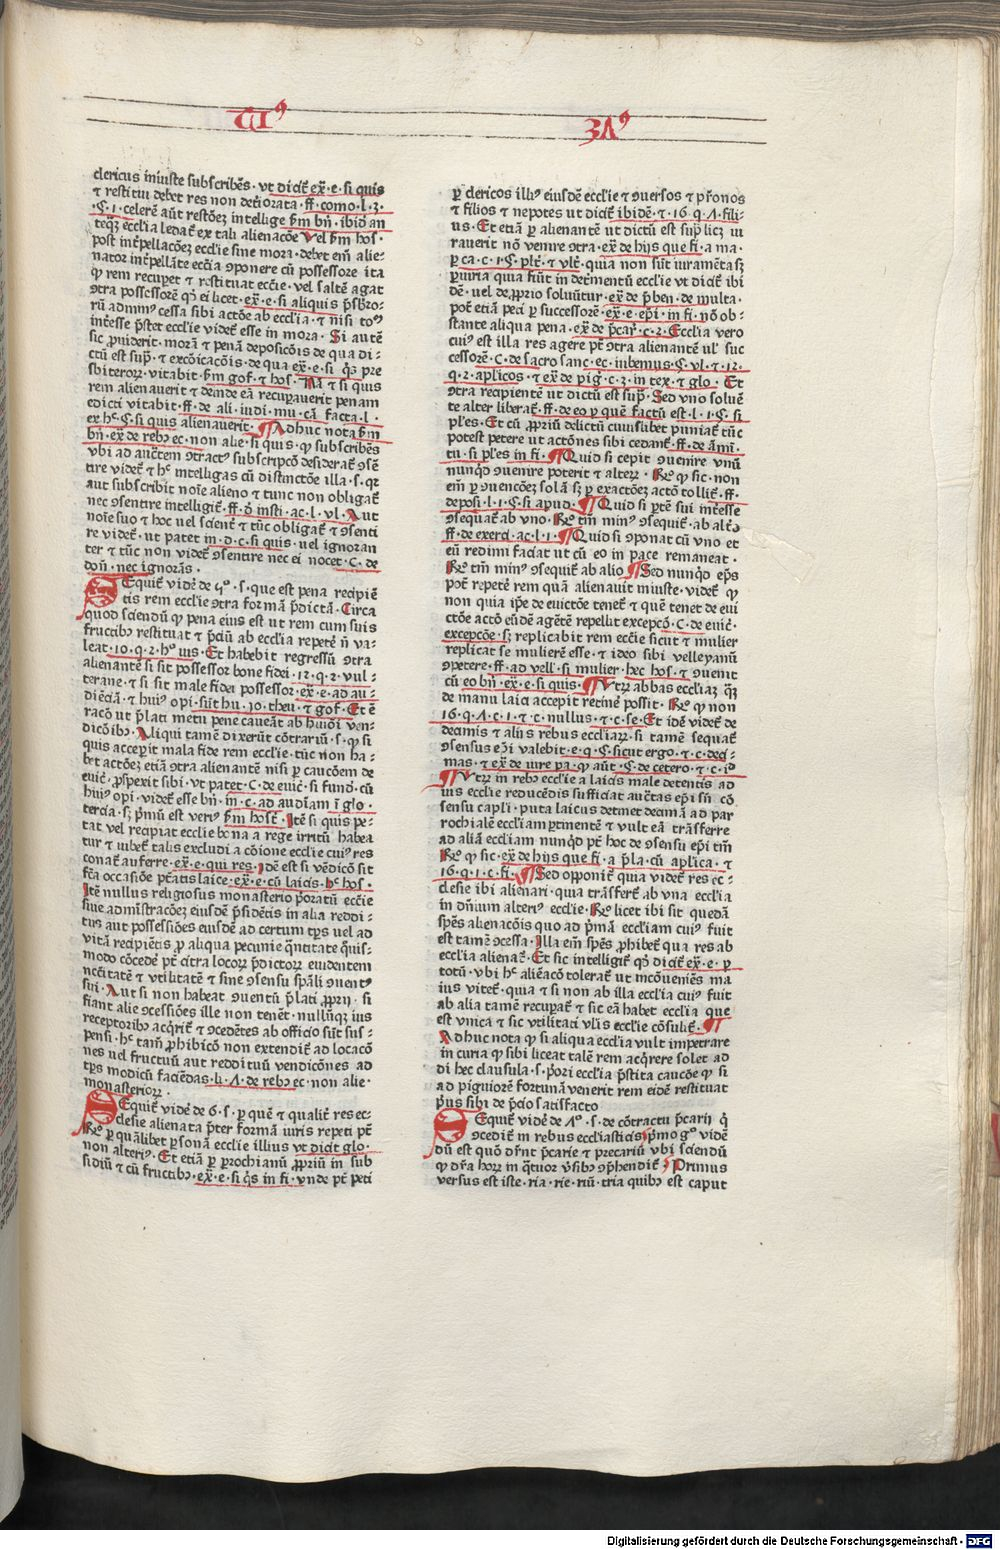 clericus iniuste subscribēs · vt dicit ex̄ · e · si quis
⁊ restitui debet res non deteriorata · ff · como · l · 3 ·
· Ç · 1 · celerē aūt restōeꝫ intellige ẜm bn̄ · ibid an
post int̄pellacōeꝫ ecclīe sine mora · debet em̄ alie-
nator int̄pellāte eccīa ꝯponere cū possessore ita
ꝙ rem recuꝑet ⁊ restituat eccīe · vel saltē agat
int̄esse p̄stet ecclīe videt̄ esse in mora · Si autē
rem alienauerit ⁊ deinde eā recuꝑauerit penam
edicti vitabit · ff · de ali · iudi · mu · cā facta · l ·
ex hͨ · Ç · si quis alienauerit · ¶ Adhuc nota ẜm
bn̄ · ex̄ de rebꝫ ec · non alie · si quis · ꝙ subscribēs
aut subscribit noīe alieno ⁊ tunc non obligat̄
nec ꝯsentire intelligit̄ · ff · ꝙ insti · ac · l · vl · Aut
noīe suo ⁊ hoc vel scient̄ ⁊ tūc obligat̄ ⁊ ꝯsenti
re videt̄ · ut patet in · d · c · si quis · uel ignoran
ter ⁊ tūc non videt̄ ꝯsentire nec ei nocet · C · de
don̄ · nec ignorās ·
SEquit̄ vidē de 5º · s · que est pena recipiē
tis rem ecclīe ꝯtra formā p̄dictā · Circa
quod sciendū ꝙ pena eius est ut rem cum suis
fructibꝫ restituat ⁊ p̄ciū ab ecclīa repetē n̄ va-
leat · 10 · q · 2 · hº ius · Et habebit regressū ꝯtra
alienantē si sit possessor bone fidei · 12 · q · 2 · vul-
terane · ⁊ si sit male fidei possessor · ex̄ · e · ad au-
diēciā · ⁊ huiꝰ opi · sūt hu · jo · theu · ⁊ gof · Et ē
racō ut p̄lati metu pene caueāt ab huiōi ven-
dicōibꝫ · Aliqui tamē dixerūt cōtrariū · s · ꝙ si
quis acceꝑit mala fide rem ecclīe · tūc non ha-
bet actōeꝫ etiā ꝯtra alienantē nisi ꝑ caucōem de
euic̄ · ꝓspexit sibi · vt patet · C · de euic̄ · si fund̄ · cū
huiꝰ opi · videt̄ esse bn̄ · in · c · ad audīam · ī glo ·
tercia · sꝫ p̄mū est veriꝰ ẜm host̄ · Itē si quis pe-
tat vel recipiat ecclīe bona a rege irritū habea
tur ⁊ iubet̄ talis excludi a cōione ecclīe cuiꝰ res
conat̄ auferre · ex̄ · e · qui res · idē est si vēdicō sit
fc̄a occasiōe p̄tatis laice · ex̄ · e · cū laicis · hͨ hos ·
Itē nullus religiosus monasterio p̄ꝛatū eccīe
siue admīstracōeꝫ eiusdē p̄sidētis in alia reddi-
tus aut possessiōes eiusdē ad certum tꝑs vel ad
vitā recipiētis ꝓ aliqua pecunie q̄ntitate q̄uis-
modo cōcedē pt̄ citra locoꝝ p̄dictoꝝ euidentem
nc̄citatē ⁊ vtilitatē ⁊ sine ꝯsensu sp̄ali ꝯuentꝰ
sui · Aut si non habeat ꝯuentū p̄lati ꝓprij · si
fiant alie ꝯcessiōes ille non tenēt · nullūqꝫ ius
receptoribꝫ acq̄rit̄ ⁊ ꝯcedētes ab officio sūt sus-
pensi · hͨ tam̄ ꝓhibicō non extendit̄ ad locacō
nes uel fructuū aut reddituū vendicōnes ad
tꝑs modicū faciēdas · li · Λ · de rebꝫ ec · non alie ·
monasterioꝝ ·
SEquit̄ vidē de 6 · s · ꝑ quē ⁊ qualit̄ res ec-
clesie alienata p̄ter formā iuris repeti pt̄
Rº ꝑ quālibet ꝑsonā ecclīe illius vt dicit glo ·
non alteriꝰ · Et etiā ꝑ ꝑrochianū ꝓpriū in sub
sidiū ⁊ cū fructibꝫ · ex̄ · e · si q̄s in fi · vnde pt̄ peti
ꝑ clericos illiꝰ eiusdē ecclīe ⁊ ꝯuersos ⁊ pr̄onos
⁊ filios ⁊ nepotes ut dicit̄ ibidē · ⁊ · 16 · q · Λ · fili-
us · Et etiā ꝑ alienantē ut dictū est sup̄ licꝫ iu
rauerit nō venire ꝯtra · ex̄ de hijs que fi · a ma ·
ꝑ ca · c · 1 · Ç · plr̄ · ⁊ vlt̄ · quia non sūt iuramēta sꝫ
ꝑiuria quia fiūt in det̄mentū ecclīe vt dicit̄ ibi
dē · vel de ꝓprio soluūtur · ex̄ de p̄ben · de multa ·
pot̄ etiā peti ꝑ successorē · ex̄ · e · ep̄i · in fi · nō ob-
stante aliqua pena · ex̄ de p̄car̄ · c · 2 · Ecclīa vero
cuiꝰ est illa res agere pt̄ ꝯtra alienantē ul̄ suc
cessorē · C · de sacro sanc · ec · iubemus · Ç · vl · ⁊ · 12 ·
q · 2 · apl̄icos · ⁊ ex̄ de piḡ · c · 3 · in tex · ⁊ glo · Et
ꝯtra recipientē ut dictū est sup̄ · Sed vno soluē
te alter liberat̄ · ff · de eo ꝑ quē factū est · l · 1 · Ç · si
pl̄es · Et cū ꝓpriū delictū cuiuslibet puniat̄ tūc
potest petere ut actōnes sibi cedant̄ · ff · de am̄i ·
tu · si pl̄es in fi · ¶ Quid si cepit ꝯuenire vnū
nunqͥd ꝯuenire poterit ⁊ alteꝝ · Rº ꝙ sic · non
em̄ ꝑ ꝯuencōeꝫ solā sꝫ ꝑ exactōeꝫ actō tollit̄ · ff ·
deposi · l · 1 · Ç · si apud · ¶ Quid si ꝑtē sui int̄esse
ꝯsequat̄ ab vno · Rº tm̄ minꝰ ꝯsequit̄ · ab alt̄o
ff · de exerci · ac · l · 1 · ¶ Quid si ꝯponat cū vno et
eū redimi faciat ut cū eo in pace remaneat ·
Rº tm̄ minꝰ ꝯsequit̄ ab alio · ¶ Sed nunqͥd ep̄s
pot̄ repetē rem quā alienauit iniuste · videt̄ ꝙ
non quia ip̄e de euictōe tenet̄ ⁊ quē tenet de eui
ctōe actō eūdē agētē repellit excepcō · C · de euic̄ ·
excepcōe · sꝫ replicabit rem eccīe sicut ⁊ mulier
replicat se mulierē esse · ⁊ ideo sibi velleyanū
ꝯpetere · ff · ad vell̄ · si mulier · hec hos · ⁊ ꝯuenit
cū eo bn̄ · ex̄ · e · si quis · ¶ Vtꝝ abbas ecclīaꝫ q̄ꝫ
de manu laici accepit retinē possit · Rº ꝙ non
16 · q · Λ · c · 1 · ⁊ c · nullus · ⁊ · c · se · Et idē videt̄ de
decimis ⁊ aliis rebus ecclīaꝝ · si tamē sequat̄
ꝯsensus ep̄i valebit · e · q · Ç · sicut ergo · ⁊ · c · deci-
mas · ⁊ ex̄ de iure pa · ꝙ aūt · Ç · de cetero · ⁊ · c · id
¶ Vtꝝ in rebꝫ ecclīe a laicis male detentis ad
ius ecclīe reducēdis sufficiat auc̄tas ep̄i sn̄ cō
sensu capl̄i · puta laicus detinet decimā ad par
rochialē ecclīam ꝑtinentē ⁊ vult eā trāsferre
ad aliā ecclīam nunqͥd pt̄ hoc de ꝯsensu ep̄i tm̄
Rº ꝙ sic · ex̄ de hijs que fi · a p̄la · cū apl̄ica · ⁊
16 · q · 1 · c · fi · ¶ Sed opponit̄ quia videt̄ res ec-
clesie ibi alienari · quia trāsfert̄ ab vna ecclīa
in dn̄ium alteriꝰ ecclīe · Rº licet ibi sit quedā
sp̄es alienacōis quo ad p̄mā ecclīam cuiꝰ fuit
est tamē ꝯcessa · Illa em̄ sp̄es ꝓhibet̄ qua res ab
ecclīa alienat̄ · Et sic intelligit̄ qd̄ dicit̄ ex̄ · e · ꝑ
totū · vbi hͨ alieāco tolerat̄ ut incōueniēs ma
ius vitet̄ · quia ⁊ si non ab illa ecclīa cuiꝰ fuit
ab alia tamē recuꝑat̄ ⁊ sic eā habet ecclīa que
est vnica ⁊ sic vtilitati vl̄is ecclīe cōsulit̄ · ¶
Adhuc nota ꝙ si aliqua ecclīa vult impetrare
in curia ꝙ sibi liceat talē rem acq̄rere solet ad
di hec clausula · s · p̄ori ecclīa p̄stita caucōe ꝙ si
ad piguiorē fortunā venerit rem eidē restituat
p̄us sibi de p̄cio satisfacto
SEquit̄ vidē de Λº · s · de cōtractu p̄carij q̄
ꝯcedit̄ in rebus ecclīasticis p̄mo gº vidē
dū est quō dr̄nt p̄carie ⁊ precariū vbi sciendū
ꝙ dr̄a hoꝝ in q̄tuor ṽsibꝫ ꝯp̄hendit̄ · Primus
versus est iste · ria · rie · riū · tria quibꝫ est caput
Digitalisierung gefördert durch die Deutsche Forschungsgemeinschaft - DFG